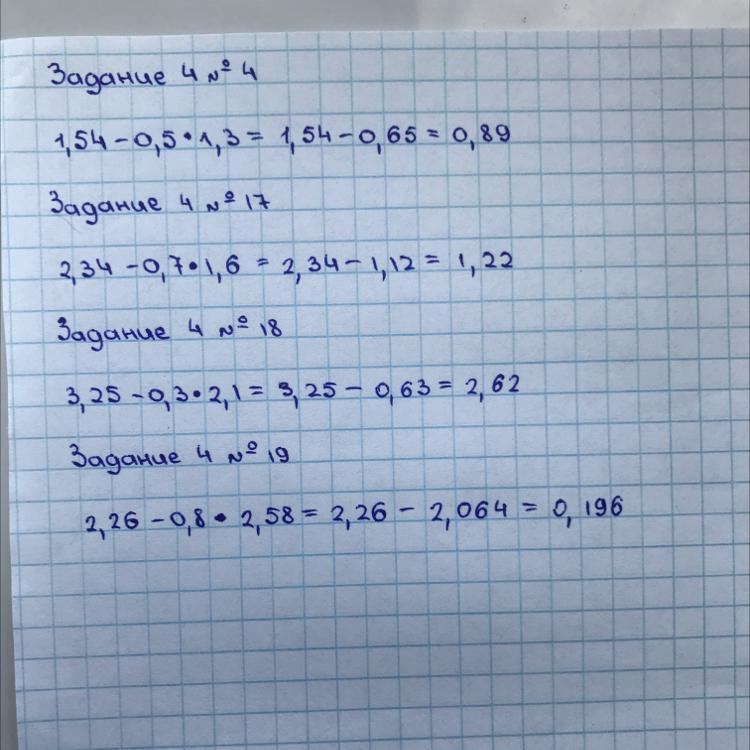 Задание 4 № 4
1,54 - 0,5 • 1,3 = 1,54 - 0,65 = 0,89
Задание 4 № 17
2,34 - 0,7 • 1,6 = 2,34 - 1,12 = 1,22
Задание 4 № 18
3,25 - 0,3 • 2,1 = 3,25 - 0,63 = 2,62
Задание 4 № 19
2,26 - 0,8 • 2,58 = 2,26 - 2,064 = 0,196